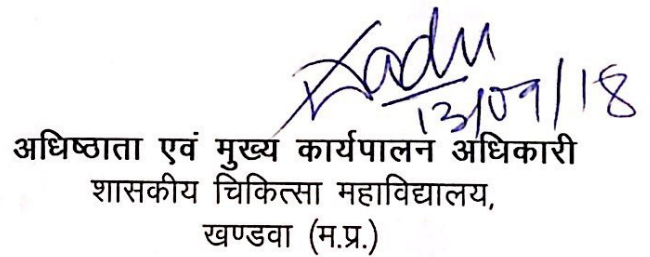 13/09/18
अधिष्ठाता एवं मुख्य कार्यपालन अधिकारी
शासकीय चिकित्सा महाविद्यालय,
खण्डवा (म.प्र.)